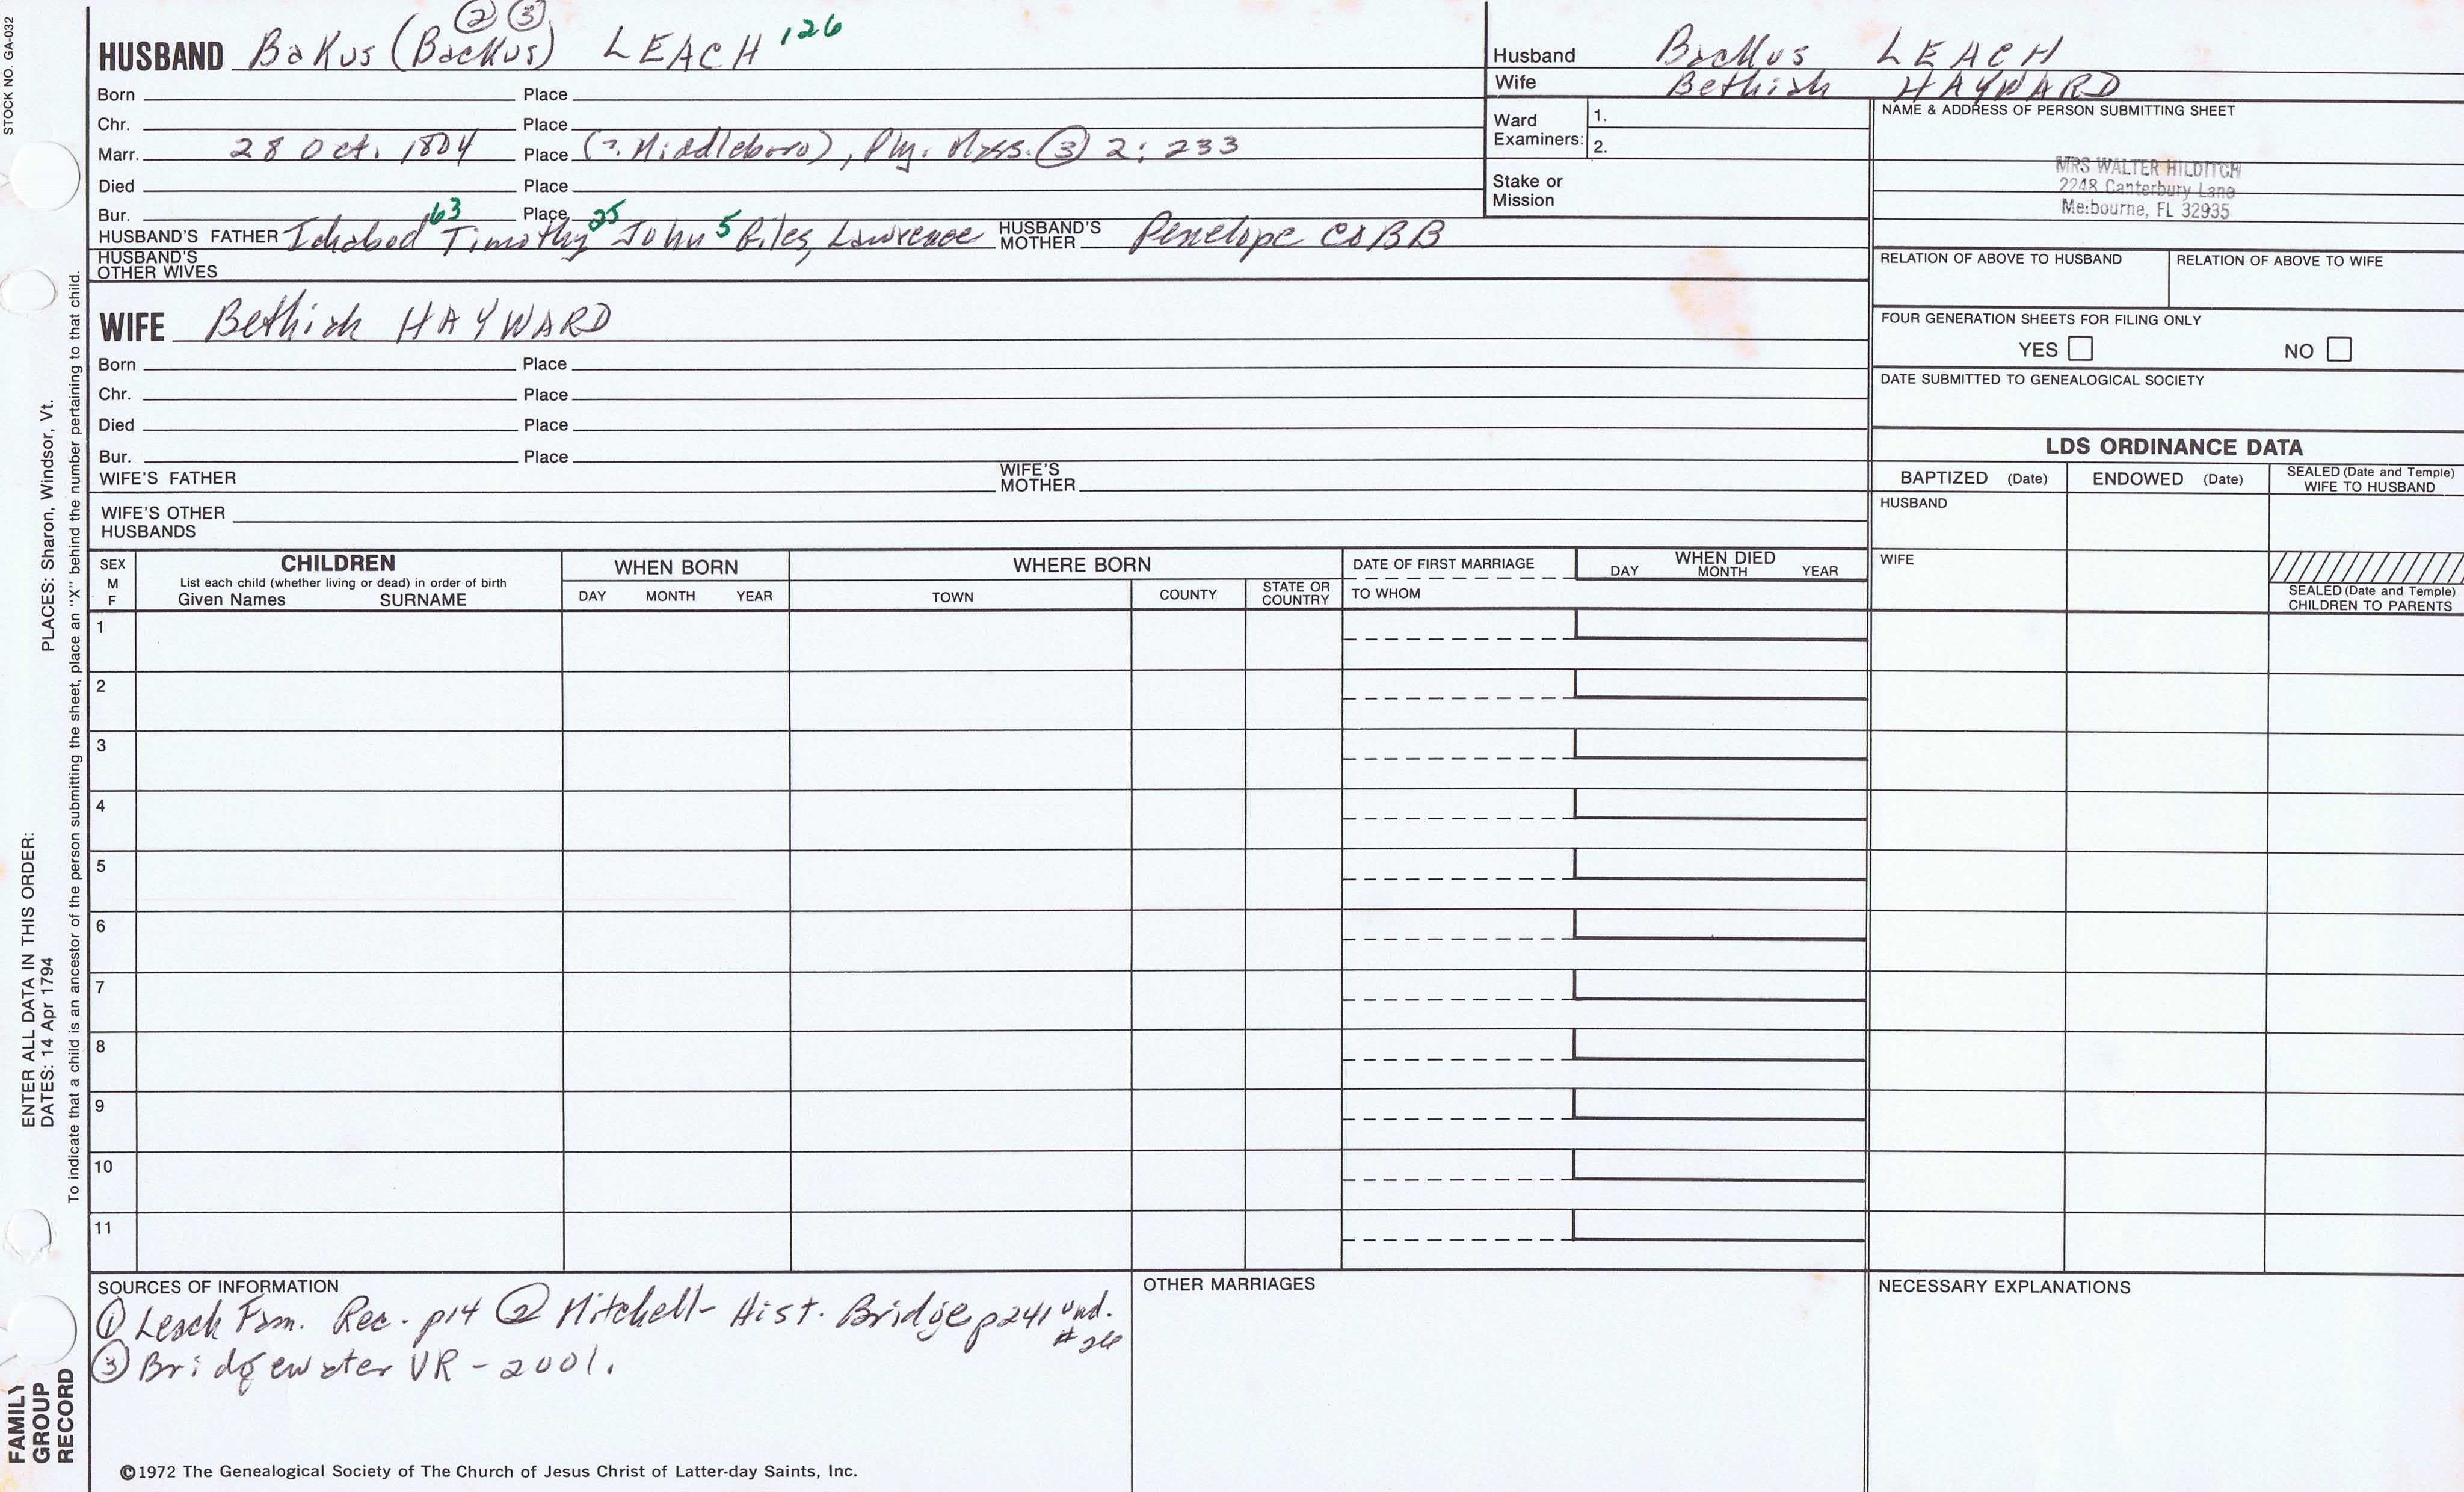 STOCK NO. GA-032
② ③
HUSBAND Bakus (Backus) LEACH 126
Born Place
Chr. Place
Marr. 28 Oct. 1804 Place (?. Middleboro), Ply. Mass. ③ 2:233
Died Place
Bur. Place
HUSBAND'S FATHER Ichabod 63 Timothy 25 John 5 Giles, Lawrence HUSBAND'S MOTHER Penelope COBB
HUSBAND'S OTHER WIVES
WIFE Bethiah HAYWARD
Born Place
Chr. Place
Died Place
Bur. Place
WIFE'S FATHER WIFE'S MOTHER
WIFE'S OTHER HUSBANDS
Husband Backus LEACH
Wife Bethiah HAYWARD
Ward Examiners: 1.
2.
Stake or Mission
NAME & ADDRESS OF PERSON SUBMITTING SHEET
MRS WALTER HILDITCH
2248 Canterbury Lane
Melbourne, FL 32935
RELATION OF ABOVE TO HUSBAND RELATION OF ABOVE TO WIFE
FOUR GENERATION SHEETS FOR FILING ONLY
YES NO
DATE SUBMITTED TO GENEALOGICAL SOCIETY
LDS ORDINANCE DATA
BAPTIZED (Date) ENDOWED (Date) SEALED (Date and Temple) WIFE TO HUSBAND
HUSBAND
WIFE
SEALED (Date and Temple) CHILDREN TO PARENTS
SEX M F
CHILDREN
List each child (whether living or dead) in order of birth
Given Names SURNAME
WHEN BORN
DAY MONTH YEAR
WHERE BORN
TOWN COUNTY STATE OR COUNTRY
DATE OF FIRST MARRIAGE
TO WHOM
WHEN DIED
DAY MONTH YEAR
1
2
3
4
5
6
7
8
9
10
11
SOURCES OF INFORMATION
① Leach Fam. Rec. - p14 ② Mitchell - Hist. Bridge p241 und. #26
③ Bridgewater VR - 2001.
OTHER MARRIAGES
NECESSARY EXPLANATIONS
©1972 The Genealogical Society of The Church of Jesus Christ of Latter-day Saints, Inc.
ENTER ALL DATA IN THIS ORDER:
DATES: 14 Apr 1794 PLACES: Sharon, Windsor, Vt.
To indicate that a child is an ancestor of the person submitting the sheet, place an "X" behind the number pertaining to that child.
FAMILY
GROUP
RECORD